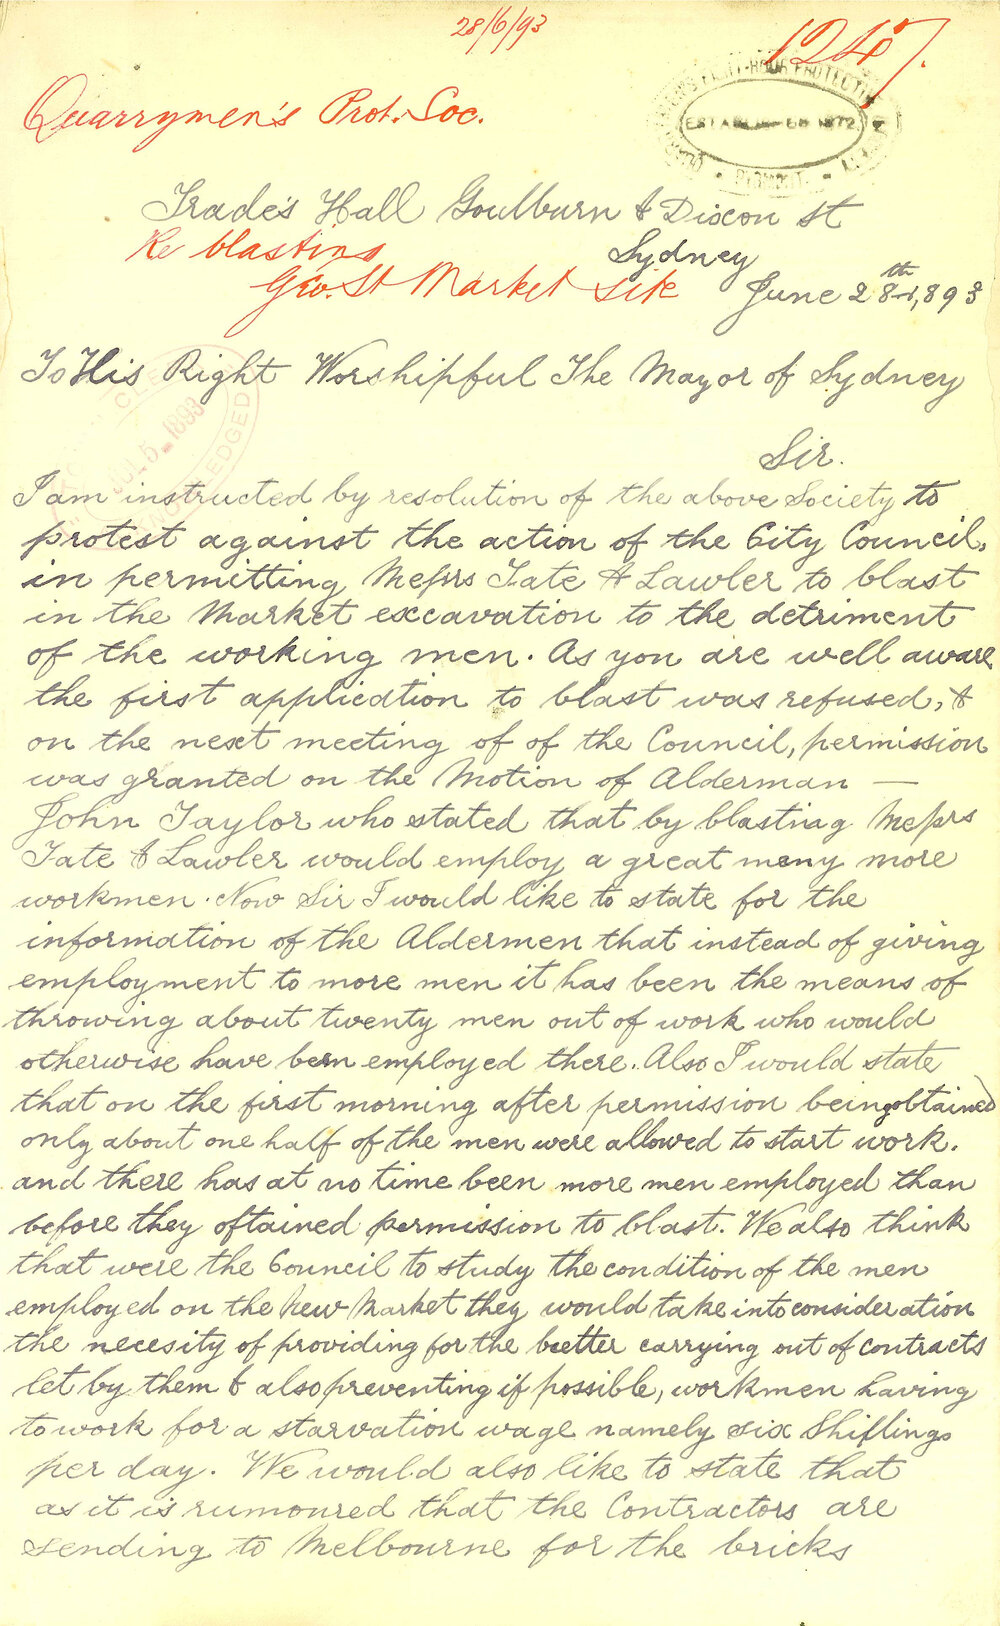 28/6/93
1247.
Quarrymen's Prot. Soc.
EIGHT-HOUR PROTECTIVE
ESTABLISHED 1872
PYRMONT
Trade's Hall Goulburn & Dixon st
Re blasting
Sydney
Geo. St Market site
June 28th 1,893
To His Right Worshipful The Mayor of Sydney
JUL 5 - 1893
Sir.
I am instructed by resolution of the above Society to
protest against the action of the City Council,
in permitting Messrs Tate & Lawler to blast
in the Market excavation to the detriment
of the working men. As you are well aware
the first application to blast was refused, &
on the next meeting of of the Council, permission
was granted on the Motion of Alderman —
John Taylor who stated that by blasting Messrs
Tate & Lawler would employ a great meny more
workmen. Now Sir I would like to state for the
information of the Aldermen that instead of giving
employment to more men it has been the means of
throwing about twenty men out of work who would
otherwise have been employed there. Also I would state
that on the first morning after permission being obtained
only about one half of the men were allowed to start work.
and there has at no time been more men employed than
before they oftained permission to blast. We also think
that were the Council to study the condition of the men
employed on the New Market they would take into consideration
the necesity of providing for the better carrying out of contracts
let by them & also preventing if possible, workmen having
to work for a starvation wage namely six Shillings
per day. We would also like to state that
as it is rumoured that the Contractors are
sending to Melbourne for the bricks